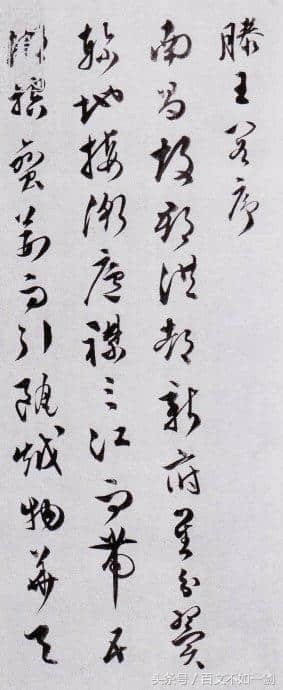 滕王閣序
南昌故郡洪都新府星分翼
軫地接衡廬襟三江而帶五
湖控蠻荊而引甌越物華天
头条号 / 百文不如一剑